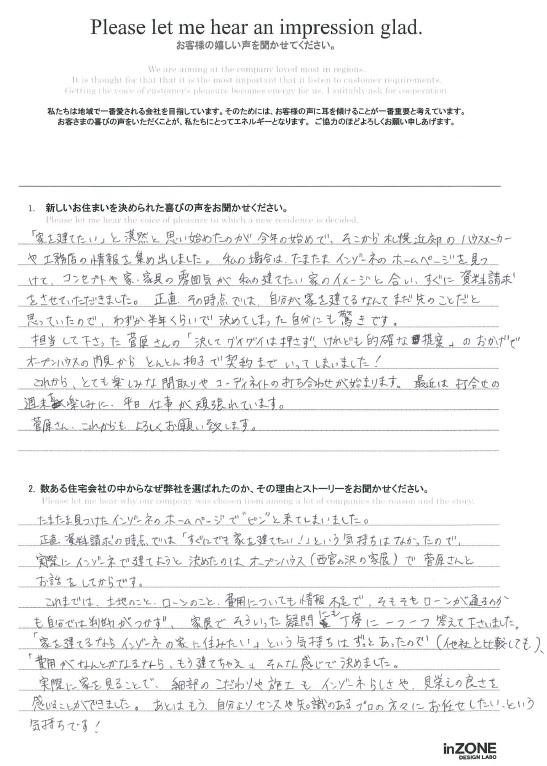 Please let me hear an impression glad.
お客様の嬉しい声を聞かせてください。
We are aiming at the company loved most in regions.
It is thought for that that it is the most important that it listen to customer requirements.
Getting the voice of customer's pleasure becomes energy for us. I suitably ask for cooperation.
私たちは地域で一番愛される会社を目指しています。そのためには、お客様の声に耳を傾けることが一番重要と考えています。
お客さまの喜びの声をいただくことが、私たちにとってエネルギーとなります。 ご協力のほどよろしくお願い申しあげます。
1. 新しいお住まいを決められた喜びの声をお聞かせください。
Please let me hear the voice of pleasure to which a new residence is decided.
「家を建てたい」と漠然と思い始めたのが今年の始めで、そこから札幌近郊のハウスメーカー
や工務店の情報を集め出しました。 私の場合は、たまたまインゾーネのホームページを見つ
けて、コンセプトや家・家具の雰囲気が私の建てたい家のイメージと合い、すぐに資料請求
をさせていただきました。 正直、その時点では、自分が家を建てるなんてまだ先のことだと
思っていたので、わずか半年くらいで決めてしまった自分にも驚きです。
担当して下さった菅原さんの「決してグイグイは押さず、けれども的確な提案」のおかげで
オープンハウスの内見からとんとん拍子で契約までいってしまいました!
これから、とても楽しみな間取りやコーディネイトの打ち合わせが始まります。 最近は打合せの
週末を楽しみに、平日仕事が頑張れています。
菅原さん、これからもよろしくお願い致します。
2. 数ある住宅会社の中からなぜ弊社を選ばれたのか、その理由とストーリーをお聞かせください。
Please let me hear why our company was chosen from among a lot of companies the reason and the story.
たまたま見つけたインゾーネのホームページで"ピン"と来てしまいました。
正直、資料請求の時点では「すぐにでも家を建てたい!」という気持ちはなかったので、
実際にインゾーネで建てようと決めたのはオープンハウス(西宮の沢の家展)で菅原さんと
お話をしてからです。
これまでは、土地のこと、ローンのこと、費用についても情報不足で、そもそもローンが通るのか
も自分では判断がつかず、家展でそういった疑問にも丁寧に一つ一つ答えて下さいました。
「家を建てるならインゾーネの家に住みたい」という気持ちはずっとあったので(他社と比較しても)、
「費用がなんとかなるなら、もう建てちゃえ」そんな感じで決めました。
実際に家を見ることで、細部のこだわりや施工もインゾーネらしさや、見栄えの良さを
感じることができました。 あとはもう、自分よりセンスや知識のあるプロの方々にお任せしたい、という
気持ちです!
inZONE
DESIGN LABO